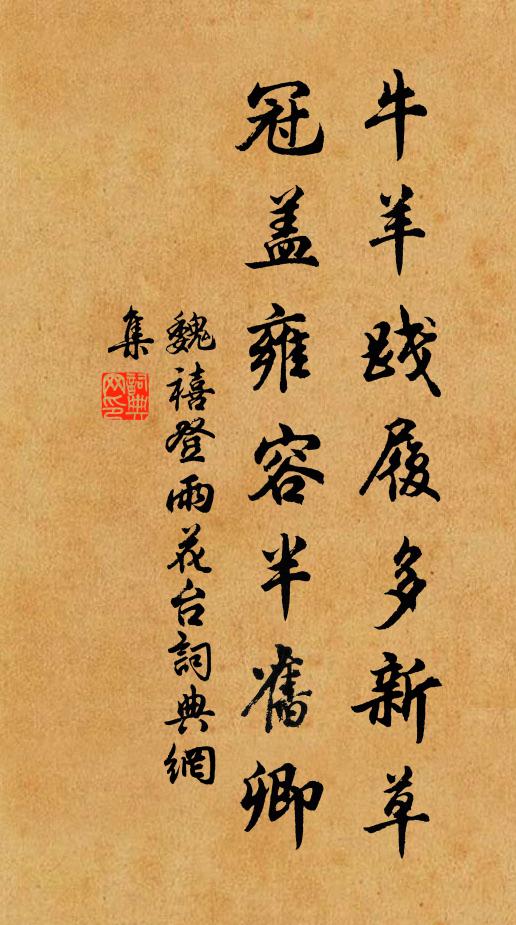 牛羊踐履多新草
冠盖雍容半舊卿
魏禧登雨花台詞典網
集
詞典
网印